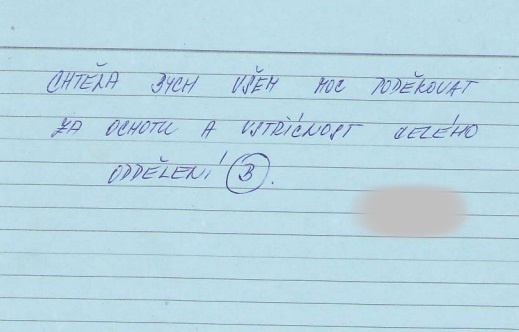 CHTĚLA BYCH VŠEM MOC PODĚKOVAT
ZA OCHOTU A VSTŘÍCNOST CELÉHO
ODDĚLENÍ B.